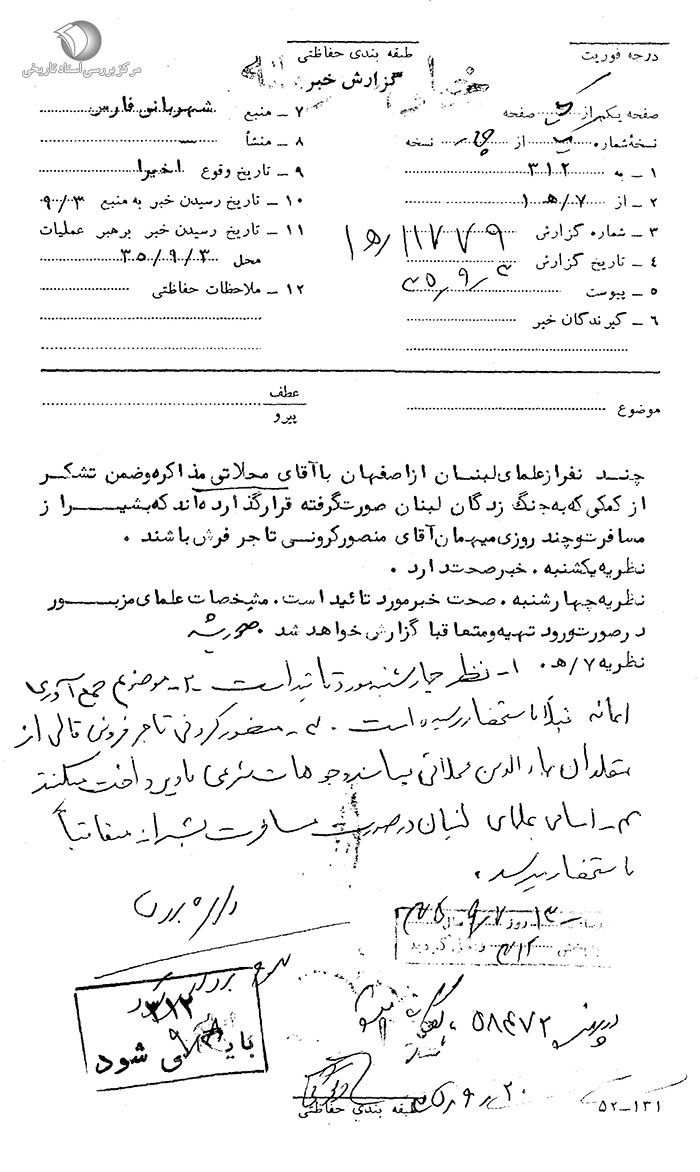 مرکز بررسی اسناد تاریخی
درجه فوریت
طبقه بندی حفاظتی
گزارش خبر
صفحه یکم از یک صفحه
نسخه شماره یک از چهار نسخه
۱ – به ۳۱۲
۲ – از ۷/ه‍ ۱
۳ – شماره گزارش ۱۱۷۷۹/ه‍ ۱
۴ – تاریخ گزارش ۳۵/۹/۴
۵ – پیوست
۶ – گیرندگان خبر
۷ – منبع شهربانی فارس
۸ – منشأ
۹ – تاریخ وقوع اخیرا
۱۰ – تاریخ رسیدن خبر به منبع ۹/۳
۱۱ – تاریخ رسیدن خبر برهبر عملیات
محل ۳۵/۹/۳
۱۲ – ملاحظات حفاظتی
موضوع
عطف
پیرو
چند نفر از علمای لبنان از اصفهان با آقای محلاتی مذاکره و ضمن تشکر
از کمکی که به جنگ زدگان لبنان صورت گرفته قرار گذارده اند که بشیراز
مسافرت و چند روزی میهمان آقای منصور کرونی تاجر فرش باشند .
نظریه یکشنبه . خبر صحت دارد .
نظریه چهارشنبه . صحت خبر مورد تائید است . مشخصات علمای مزبور
در صورت ورود تهیه و متعاقبا گزارش خواهد شد .
نظریه ۷/ه‍ . ۱- نظر چهارشنبه مورد تایید است ۲- موضوع جمع آوری
اعانه قبلا باستحضار رسیده است . ۳- منصور کرونی تاجر فروش قالی از
مقلدان بهاء الدین محلاتی میباشد و وجوهات شرعی باو پرداخت میکند
۴- اسامی علمای لبنان در صورت مسافرت بشیراز متعاقباً
باستحضار میرسد .
روز سال
۳۱۲ گردید
۳۱۲
بایگانی شود
در پرونده ۵۸۴۷۲
۲۰/۹/
طبقه بندی حفاظتی
۵۲-۱۳۱